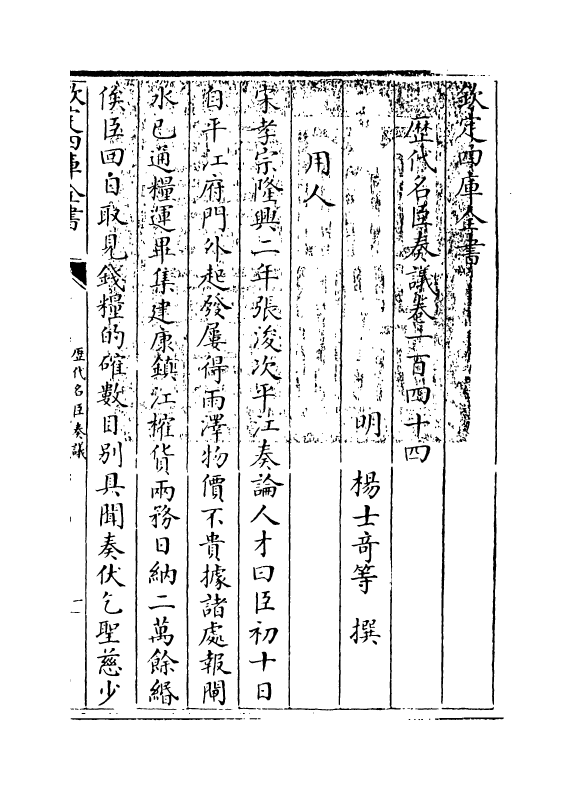 欽定四庫全書
歷代名臣奏議卷一百四十四
明 楊士奇等 撰
用人
宋孝宗隆興二年張浚次平江奏論人才曰臣初十日
自平江府門外起發屢得雨澤物價不貴據諸處報閘
水已通糧運畢集建康鎮江榷貨兩務日納二萬餘緡
俟臣回自取見錢糧的確數目別具聞奏伏乞聖慈少
欽定四庫全書
歷代名臣奏議
一